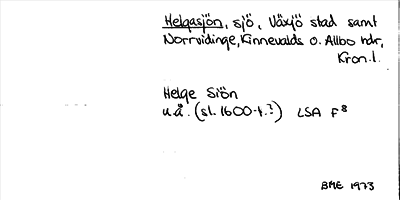 Helgasjön, sjö, Växjö stad samt
Norrvidinge, Kinnevalds o. Allbo hdr,
Kron.l.
Helge Siön
u.å. (sl. 1600-t.?) LSA F 8
BME 1973